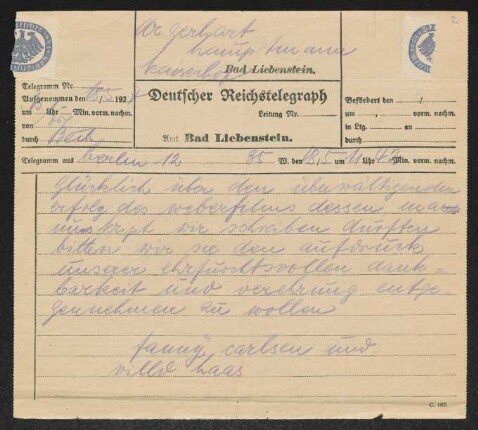 2
dr gerhart
hauptmann
kaiserhof Bad Liebenstein.
Telegramm Nr.
Aufgenommen den 18,5 192
um Uhr Min. vorm. nachm.
von
durch
Deutscher Reichstelegraph
Leitung Nr.
Amt Bad Liebenstein.
Befördert den /
um , vorm. nachm.
in Ltg. an
durch
Telegramm aus berlin 12 35 W. den 18,5 um 11 Uhr 40 Min. vorm. nachm.
glücklich über den überwältigenden
erfolg des weberfilms dessen ma
nuskript wir schreiben durften
bitten wir sie den aufdruck
unserer ehrfurchtsvollen dank=
barkeit und verehrung entge=
gennehmen zu wollen
fanny carlsen und
willi haas
C. 187.